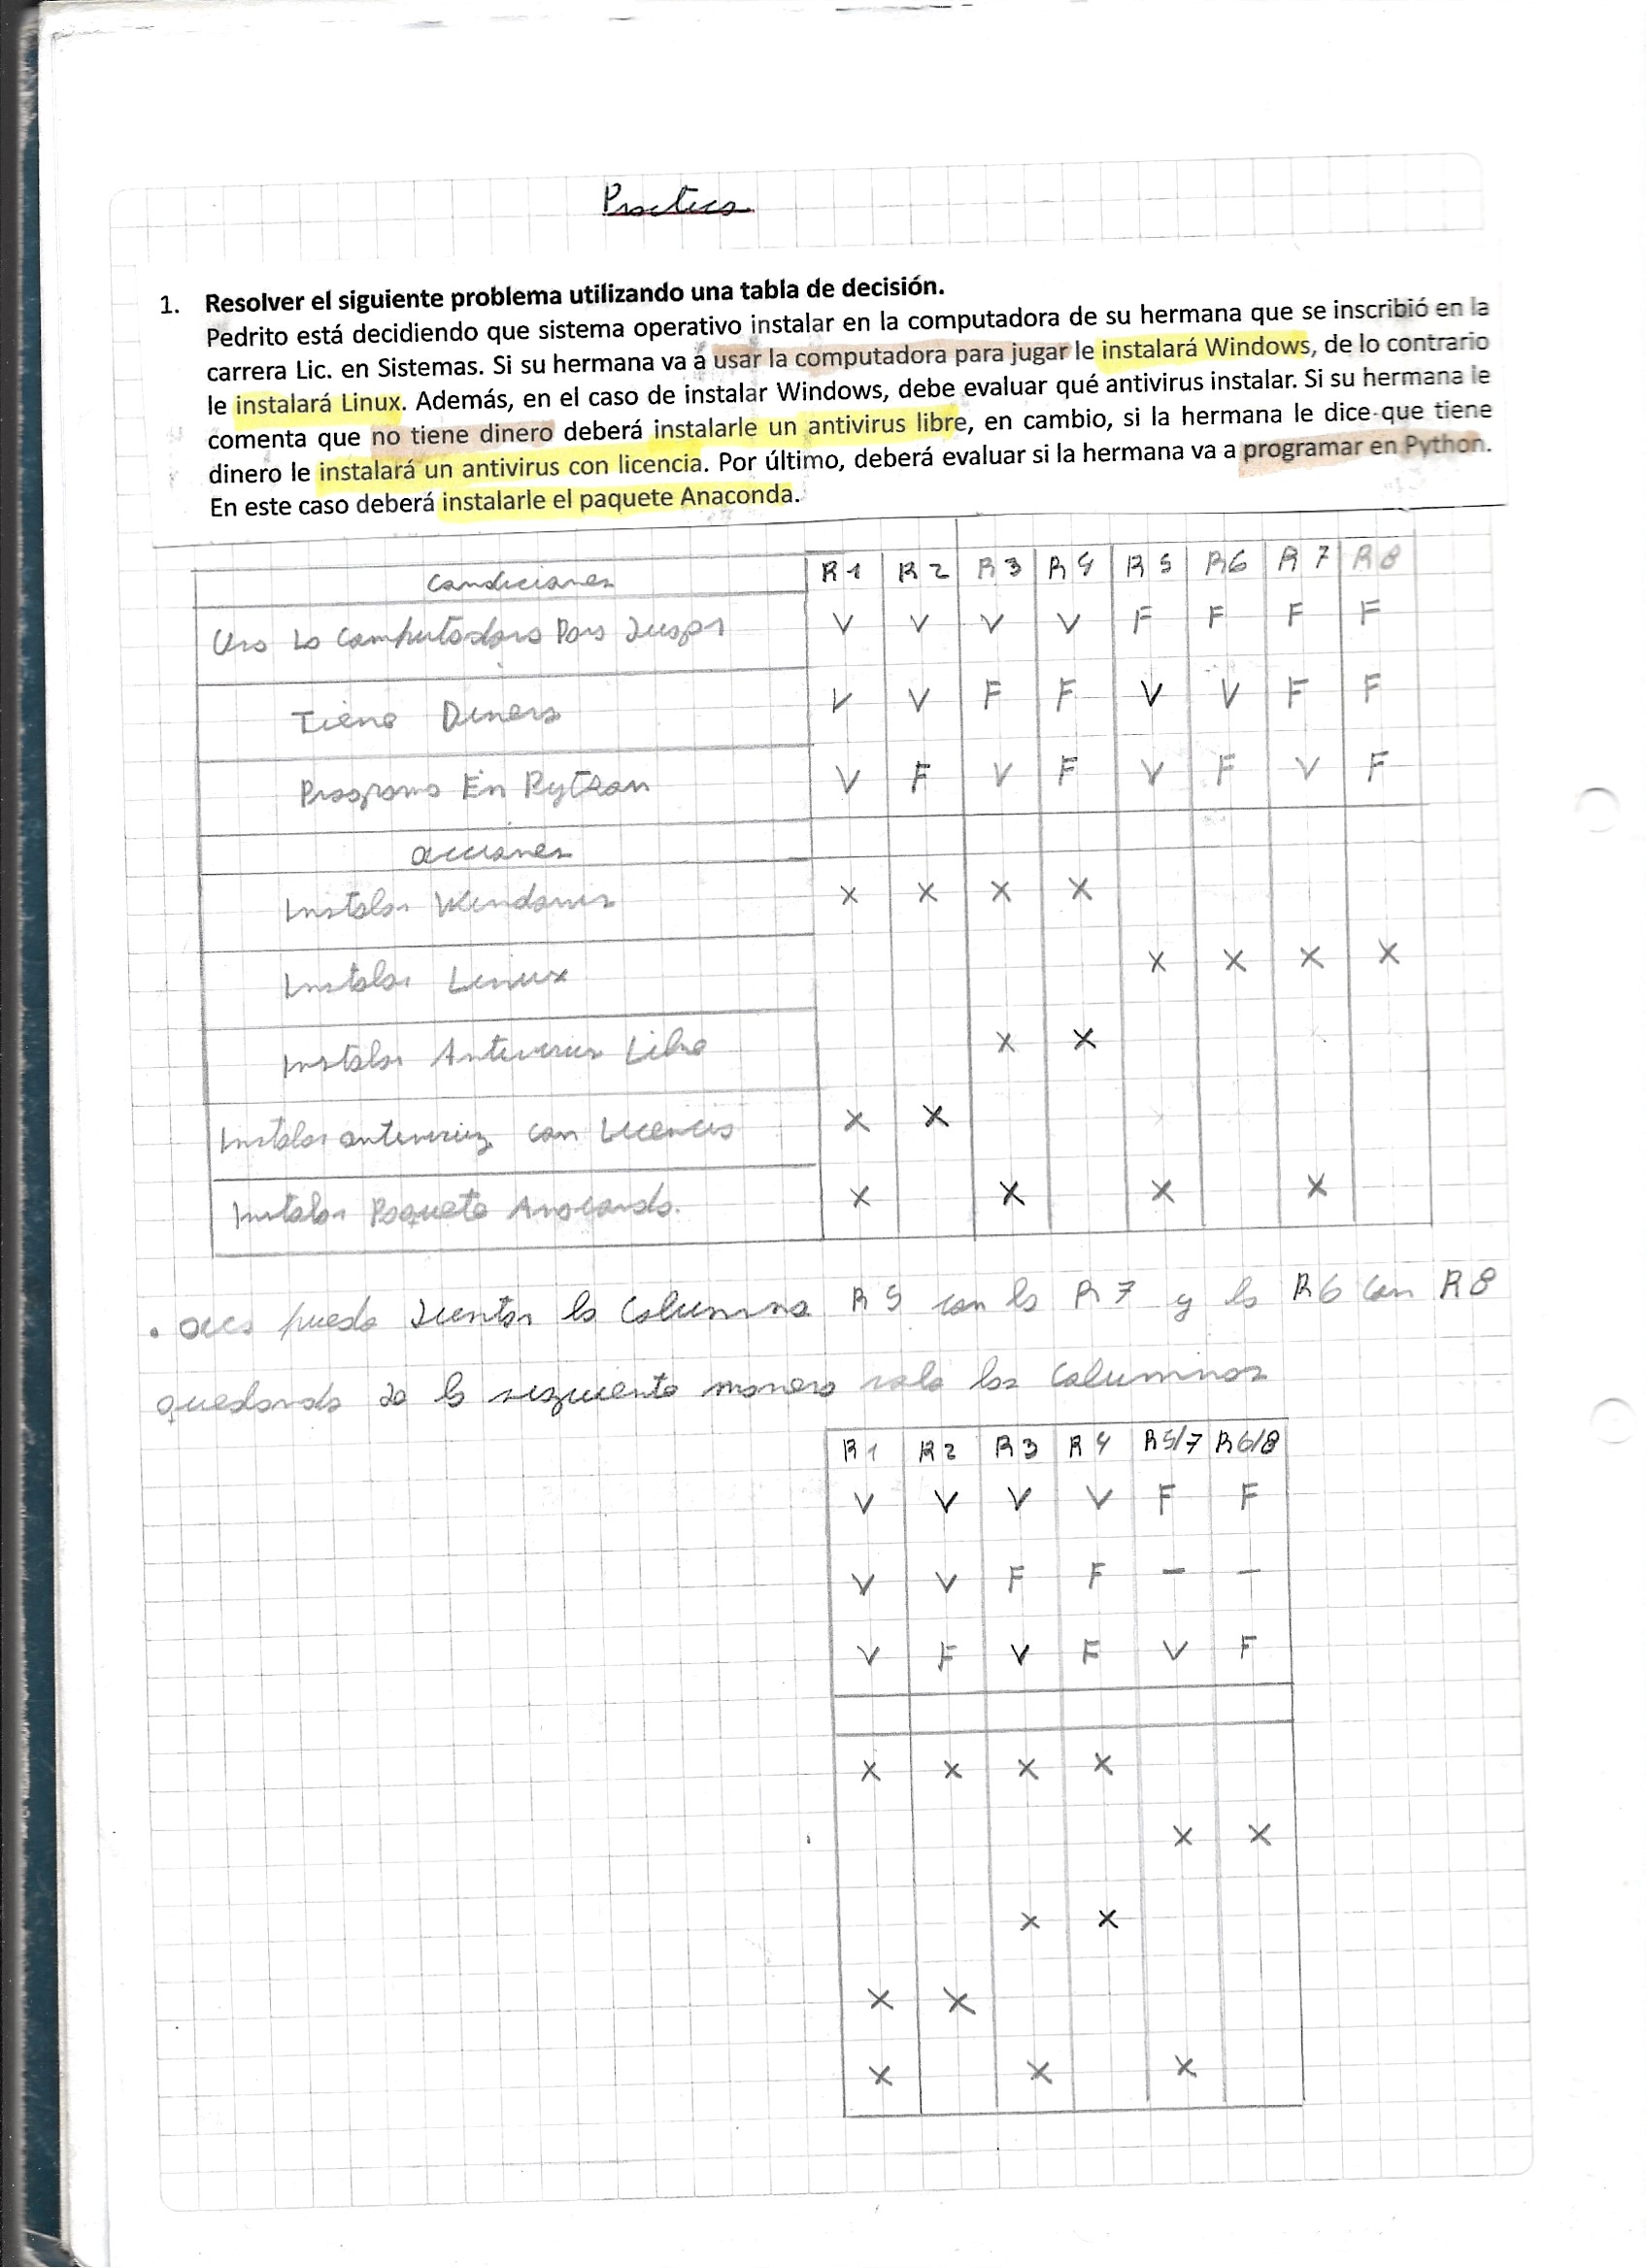 Practica
1. Resolver el siguiente problema utilizando una tabla de decisión.
Pedrito está decidiendo que sistema operativo instalar en la computadora de su hermana que se inscribió en la
carrera Lic. en Sistemas. Si su hermana va a usar la computadora para jugar le instalará Windows, de lo contrario
le instalará Linux. Además, en el caso de instalar Windows, debe evaluar qué antivirus instalar. Si su hermana le
comenta que no tiene dinero deberá instalarle un antivirus libre, en cambio, si la hermana le dice que tiene
dinero le instalará un antivirus con licencia. Por último, deberá evaluar si la hermana va a programar en Python.
En este caso deberá instalarle el paquete Anaconda.
Condiciones R1 R2 R3 R4 R5 R6 R7 R8
Usa La Computadora Para Jugar V V V V F F F F
Tiene Dinero V V F F V V F F
Programa En Python V F V F V F V F
acciones
Instalar Windows X X X X
Instalar Linux X X X X
Instalar Antivirus Libre X X
Instalar antivirus con Licencia X X
Instalar Paquete Anaconda. X X X X
• aca puedo Juntar la Columna R5 con la R7 y la R6 con R8
quedando de la siguiente manera solo las columnas
R1 R2 R3 R4 R5/7 R6/8
V V V V F F
V V F F - -
V F V F V F
X X X X
X X
X X
X X
X X X